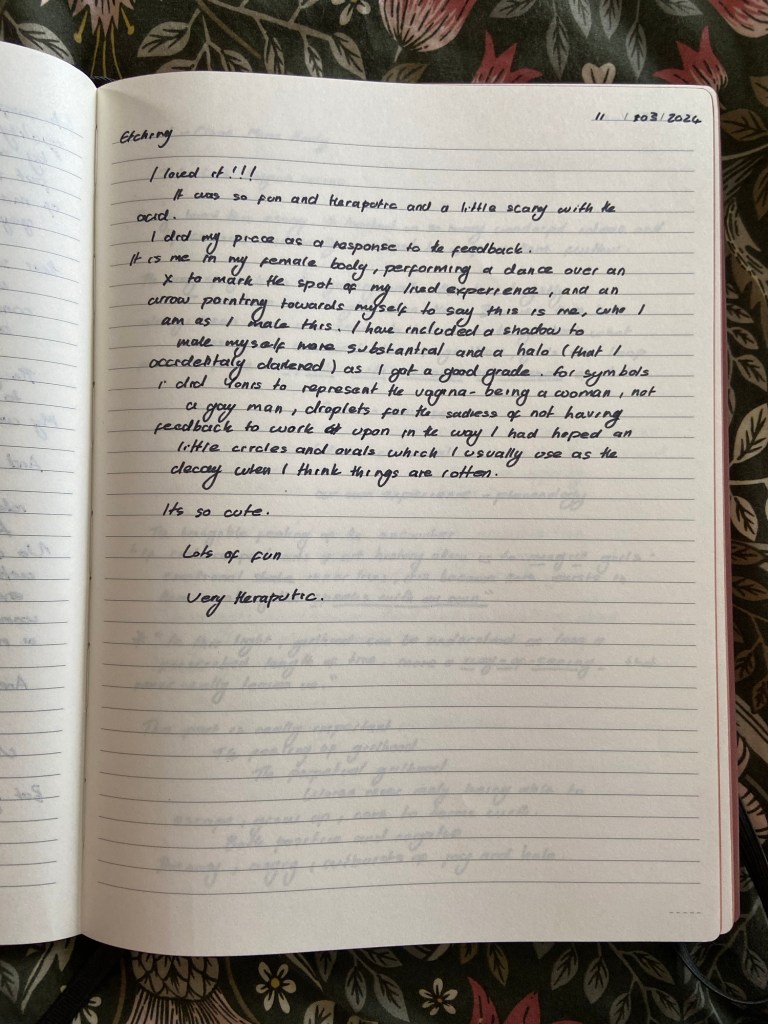 11 / 03 / 2024
Etching
I loved it!!!
It was so fun and theraputic and a little scary with the
acid.
I did my piece as a response to the feedback.
It is me in my female body, performing a dance over an
X to mark the spot of my lived experience, and an
arrow pointing towards myself to say this is me, who I
am as I make this. I have included a shadow to
make myself more substantial and a halo (that I
accidentaly darkened) as I got a good grade. For symbols
i did yonis to represent the vagina - being a woman, not
a gay man, droplets for the sadness of not having
feedback to work upon in the way I had hoped an
little circles and ovals which I usually use as the
decay when I think things are rotten.
Its so cute.
Lots of fun
Very theraputic.